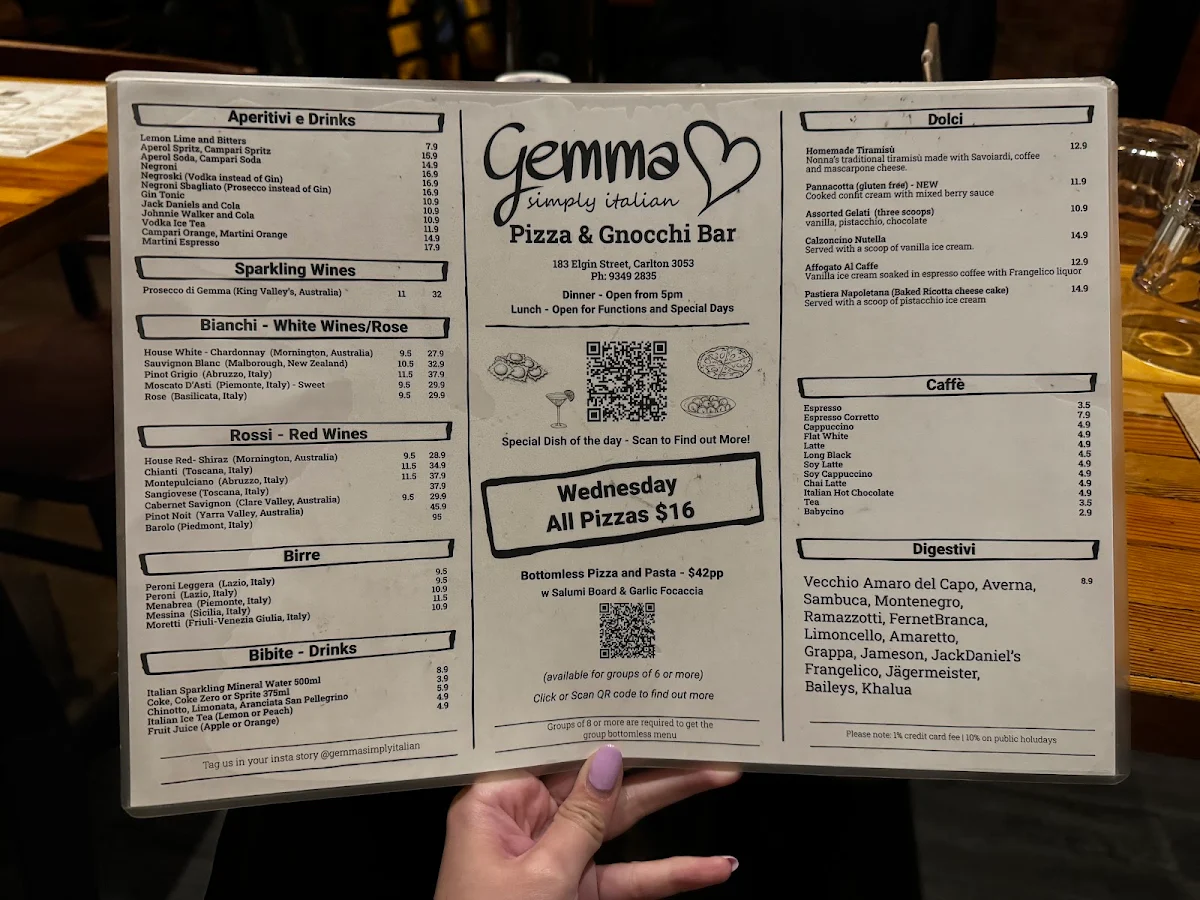 Aperitivi e Drinks
Lemon Lime and Bitters 7.9
Aperol Spritz, Campari Spritz 15.9
Aperol Soda, Campari Soda 14.9
Negroni 16.9
Negroski (Vodka instead of Gin) 16.9
Negroni Sbagliato (Prosecco instead of Gin) 16.9
Gin Tonic 10.9
Jack Daniels and Cola 10.9
Johnnie Walker and Cola 10.9
Vodka Ice Tea 11.9
Campari Orange, Martini Orange 14.9
Martini Espresso 17.9
Sparkling Wines
Prosecco di Gemma (King Valley's, Australia) 11 32
Bianchi - White Wines/Rose
House White - Chardonnay (Mornington, Australia) 9.5 27.9
Sauvignon Blanc (Malborough, New Zealand) 10.5 32.9
Pinot Grigio (Abruzzo, Italy) 11.5 37.9
Moscato D'Asti (Piemonte, Italy) - Sweet 9.5 29.9
Rose (Basilicata, Italy) 9.5 29.9
Rossi - Red Wines
House Red- Shiraz (Mornington, Australia) 9.5 28.9
Chianti (Toscana, Italy) 11.5 34.9
Montepulciano (Abruzzo, Italy) 11.5 37.9
Sangiovese (Toscana, Italy) 37.9
Cabernet Savignon (Clare Valley, Australia) 9.5 29.9
Pinot Noit (Yarra Valley, Australia) 45.9
Barolo (Piedmont, Italy) 95
Birre
Peroni Leggera (Lazio, Italy) 9.5
Peroni (Lazio, Italy) 9.5
Menabrea (Piemonte, Italy) 10.9
Messina (Sicilia, Italy) 11.5
Moretti (Friuli-Venezia Giulia, Italy) 10.9
Bibite - Drinks
Italian Sparkling Mineral Water 500ml 8.9
Coke, Coke Zero or Sprite 375ml 3.9
Chinotto, Limonata, Aranciata San Pellegrino 5.9
Italian Ice Tea (Lemon or Peach) 4.9
Fruit Juice (Apple or Orange) 4.9
Tag us in your insta story @gemmasimplyitalian
Gemma
simply italian
Pizza & Gnocchi Bar
183 Elgin Street, Carlton 3053
Ph: 9349 2835
Dinner - Open from 5pm
Lunch - Open for Functions and Special Days
Special Dish of the day - Scan to Find out More!
Wednesday
All Pizzas $16
Bottomless Pizza and Pasta - $42pp
w Salumi Board & Garlic Focaccia
(available for groups of 6 or more)
Click or Scan QR code to find out more
Groups of 8 or more are required to get the
group bottomless menu
Dolci
Homemade Tiramisù 12.9
Nonna's traditional tiramisù made with Savoiardi, coffee
and mascarpone cheese.
Pannacotta (gluten free) - NEW 11.9
Cooked confit cream with mixed berry sauce
Assorted Gelati (three scoops) 10.9
vanilla, pistacchio, chocolate
Calzoncino Nutella 14.9
Served with a scoop of vanilla ice cream.
Affogato Al Caffe 12.9
Vanilla ice cream soaked in espresso coffee with Frangelico liquor
Pastiera Napoletana (Baked Ricotta cheese cake) 14.9
Served with a scoop of pistacchio ice cream
Caffè
Espresso 3.5
Espresso Corretto 7.9
Cappuccino 4.9
Flat White 4.9
Latte 4.9
Long Black 4.5
Soy Latte 4.9
Soy Cappuccino 4.9
Chai Latte 4.9
Italian Hot Chocolate 4.9
Tea 3.5
Babycino 2.9
Digestivi
Vecchio Amaro del Capo, Averna, 8.9
Sambuca, Montenegro,
Ramazzotti, FernetBranca,
Limoncello, Amaretto,
Grappa, Jameson, JackDaniel's
Frangelico, Jägermeister,
Baileys, Khalua
Please note: 1% credit card fee | 10% on public holudays